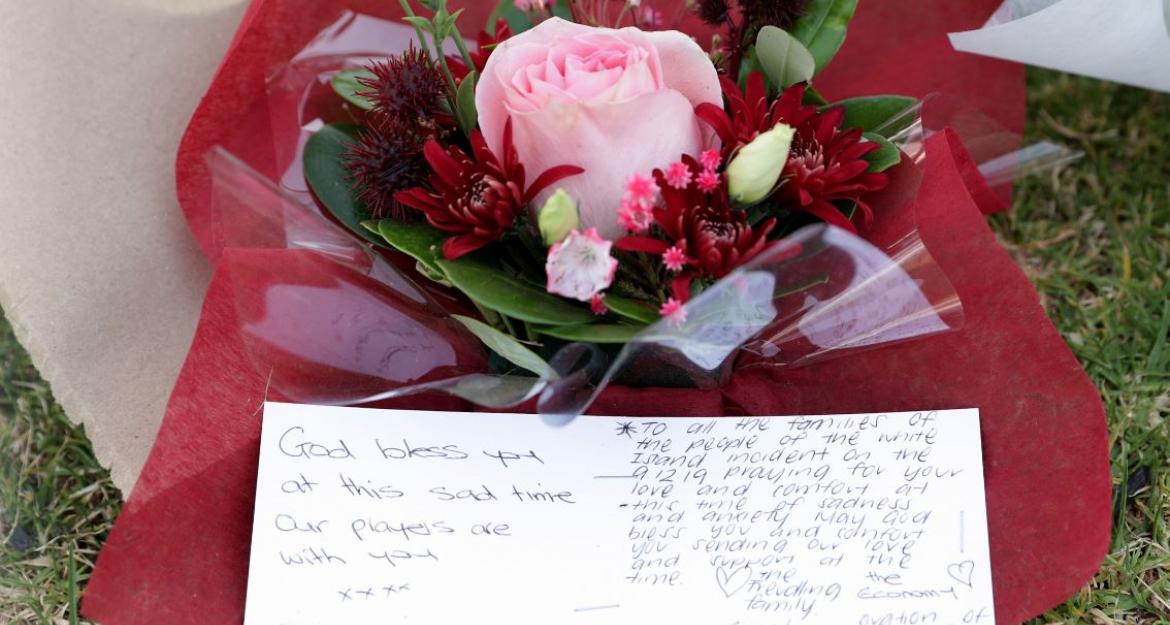 God bless you
at this sad time
Our players are
with you
xxxx
*To all the families of
the people of the white
Island incident on the
9 12 19 praying for your
love and comfort at
this time of sadness
and anxiety May God
bless you and comfort
you sending our love
and support at the
time.
the
family.
the
Economy
ovation of